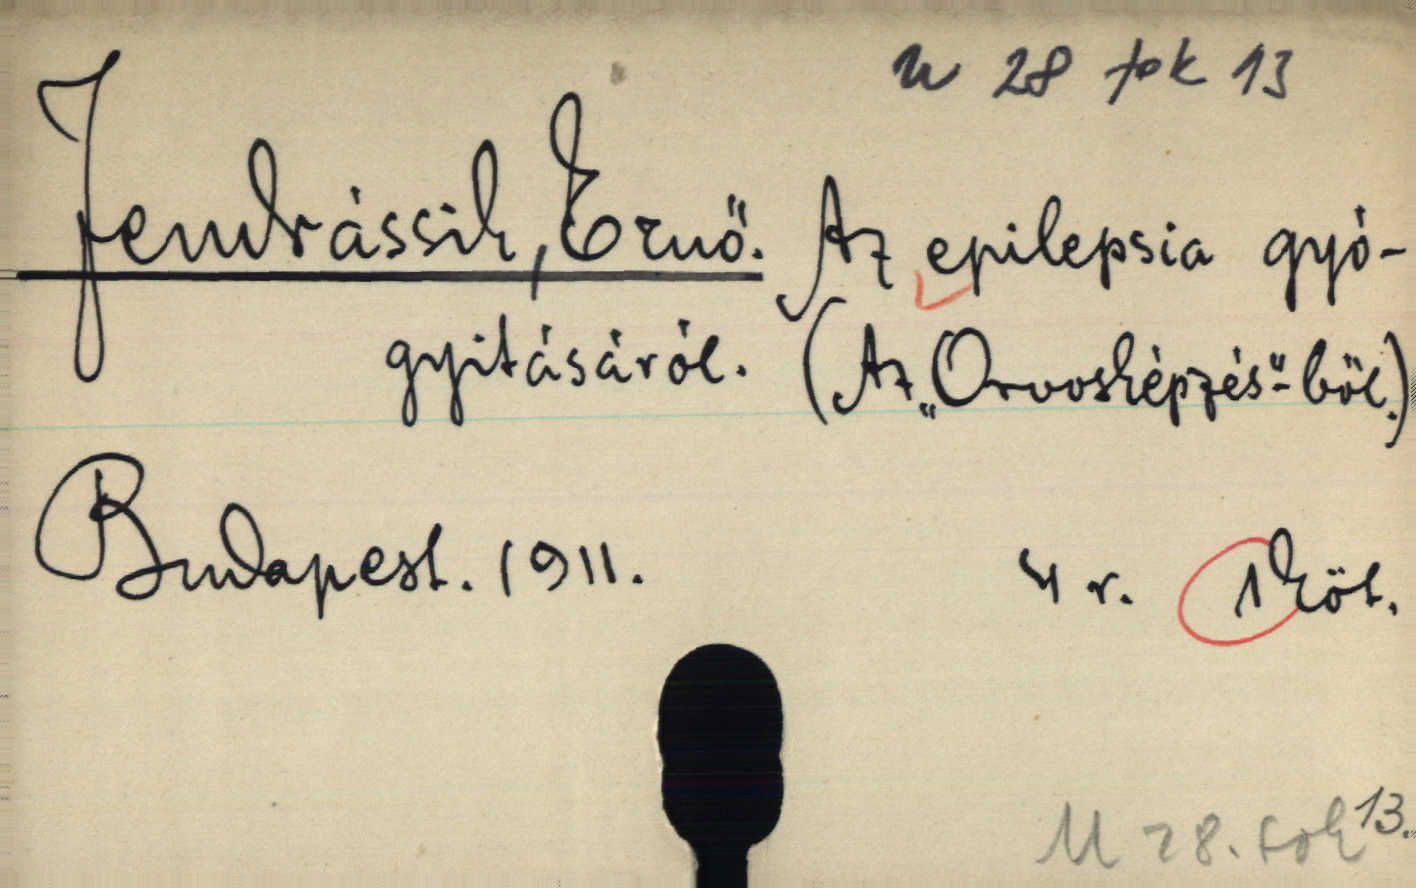 u 28 tok 13
Jendrássik, Ernő. Az epilepsia gyó-
gyitásáról. (Az „Orvosképzés"-ből.)
Budapest. 1911. 4 r. 1 köt.
M 28. tok 13.